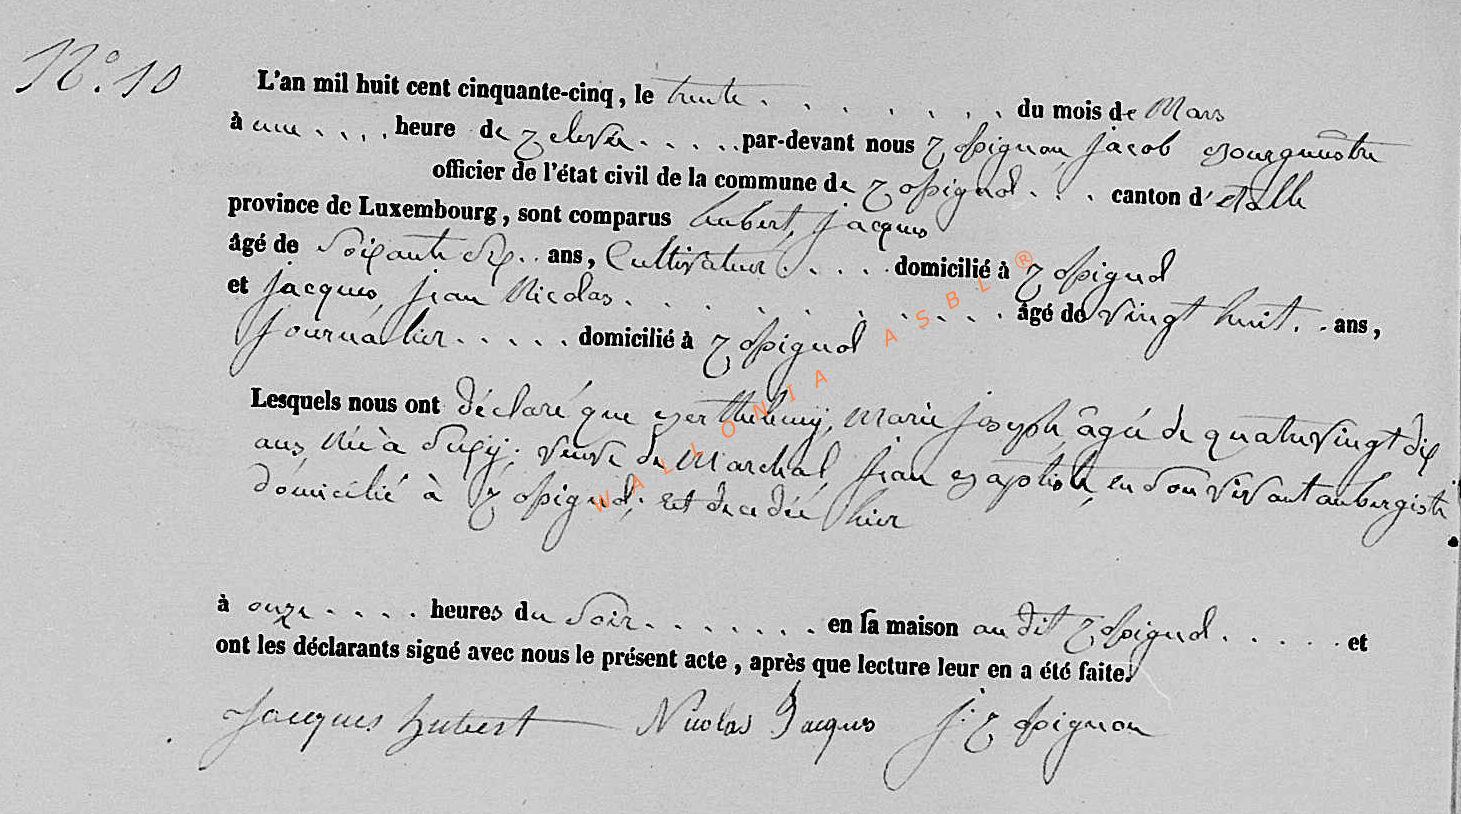 N° 10
L'an mil huit cent cinquante-cinq, le trente . . . . . . . du mois de Mars
à une . . . . heure de Relevée . . . . . par-devant nous Rossignon, Jacob Bourgmestre
officier de l'état civil de la commune de Rossignol . . . canton d'Etalle
province de Luxembourg, sont comparus hubert, Jacques
âgé de Soixante dix . . ans, Cultivateur . . . . . domicilié à Rossignol
et Jacques, Jean Nicolas . . . . . . . . . . âgé de vingt huit . . ans,
Journalier . . . . . domicilié à Rossignol
Lesquels nous ont déclaré que Berthelemy, Marie Joseph, âgée de quatre vingt dix
ans, Née à Suxy; veuve de Marchal, Jean Baptiste, en Son vivant aubergiste
domicilié à Rossignol; Est décedée hier
à onze . . . . heures du Soir . . . . . . . en sa maison au dit Rossignol . . . . . et
ont les déclarants signé avec nous le présent acte, après que lecture leur en a été faite.
Jacques hubert Nicolas Jacques J: Rossignon
WALLONIA ASBL ®